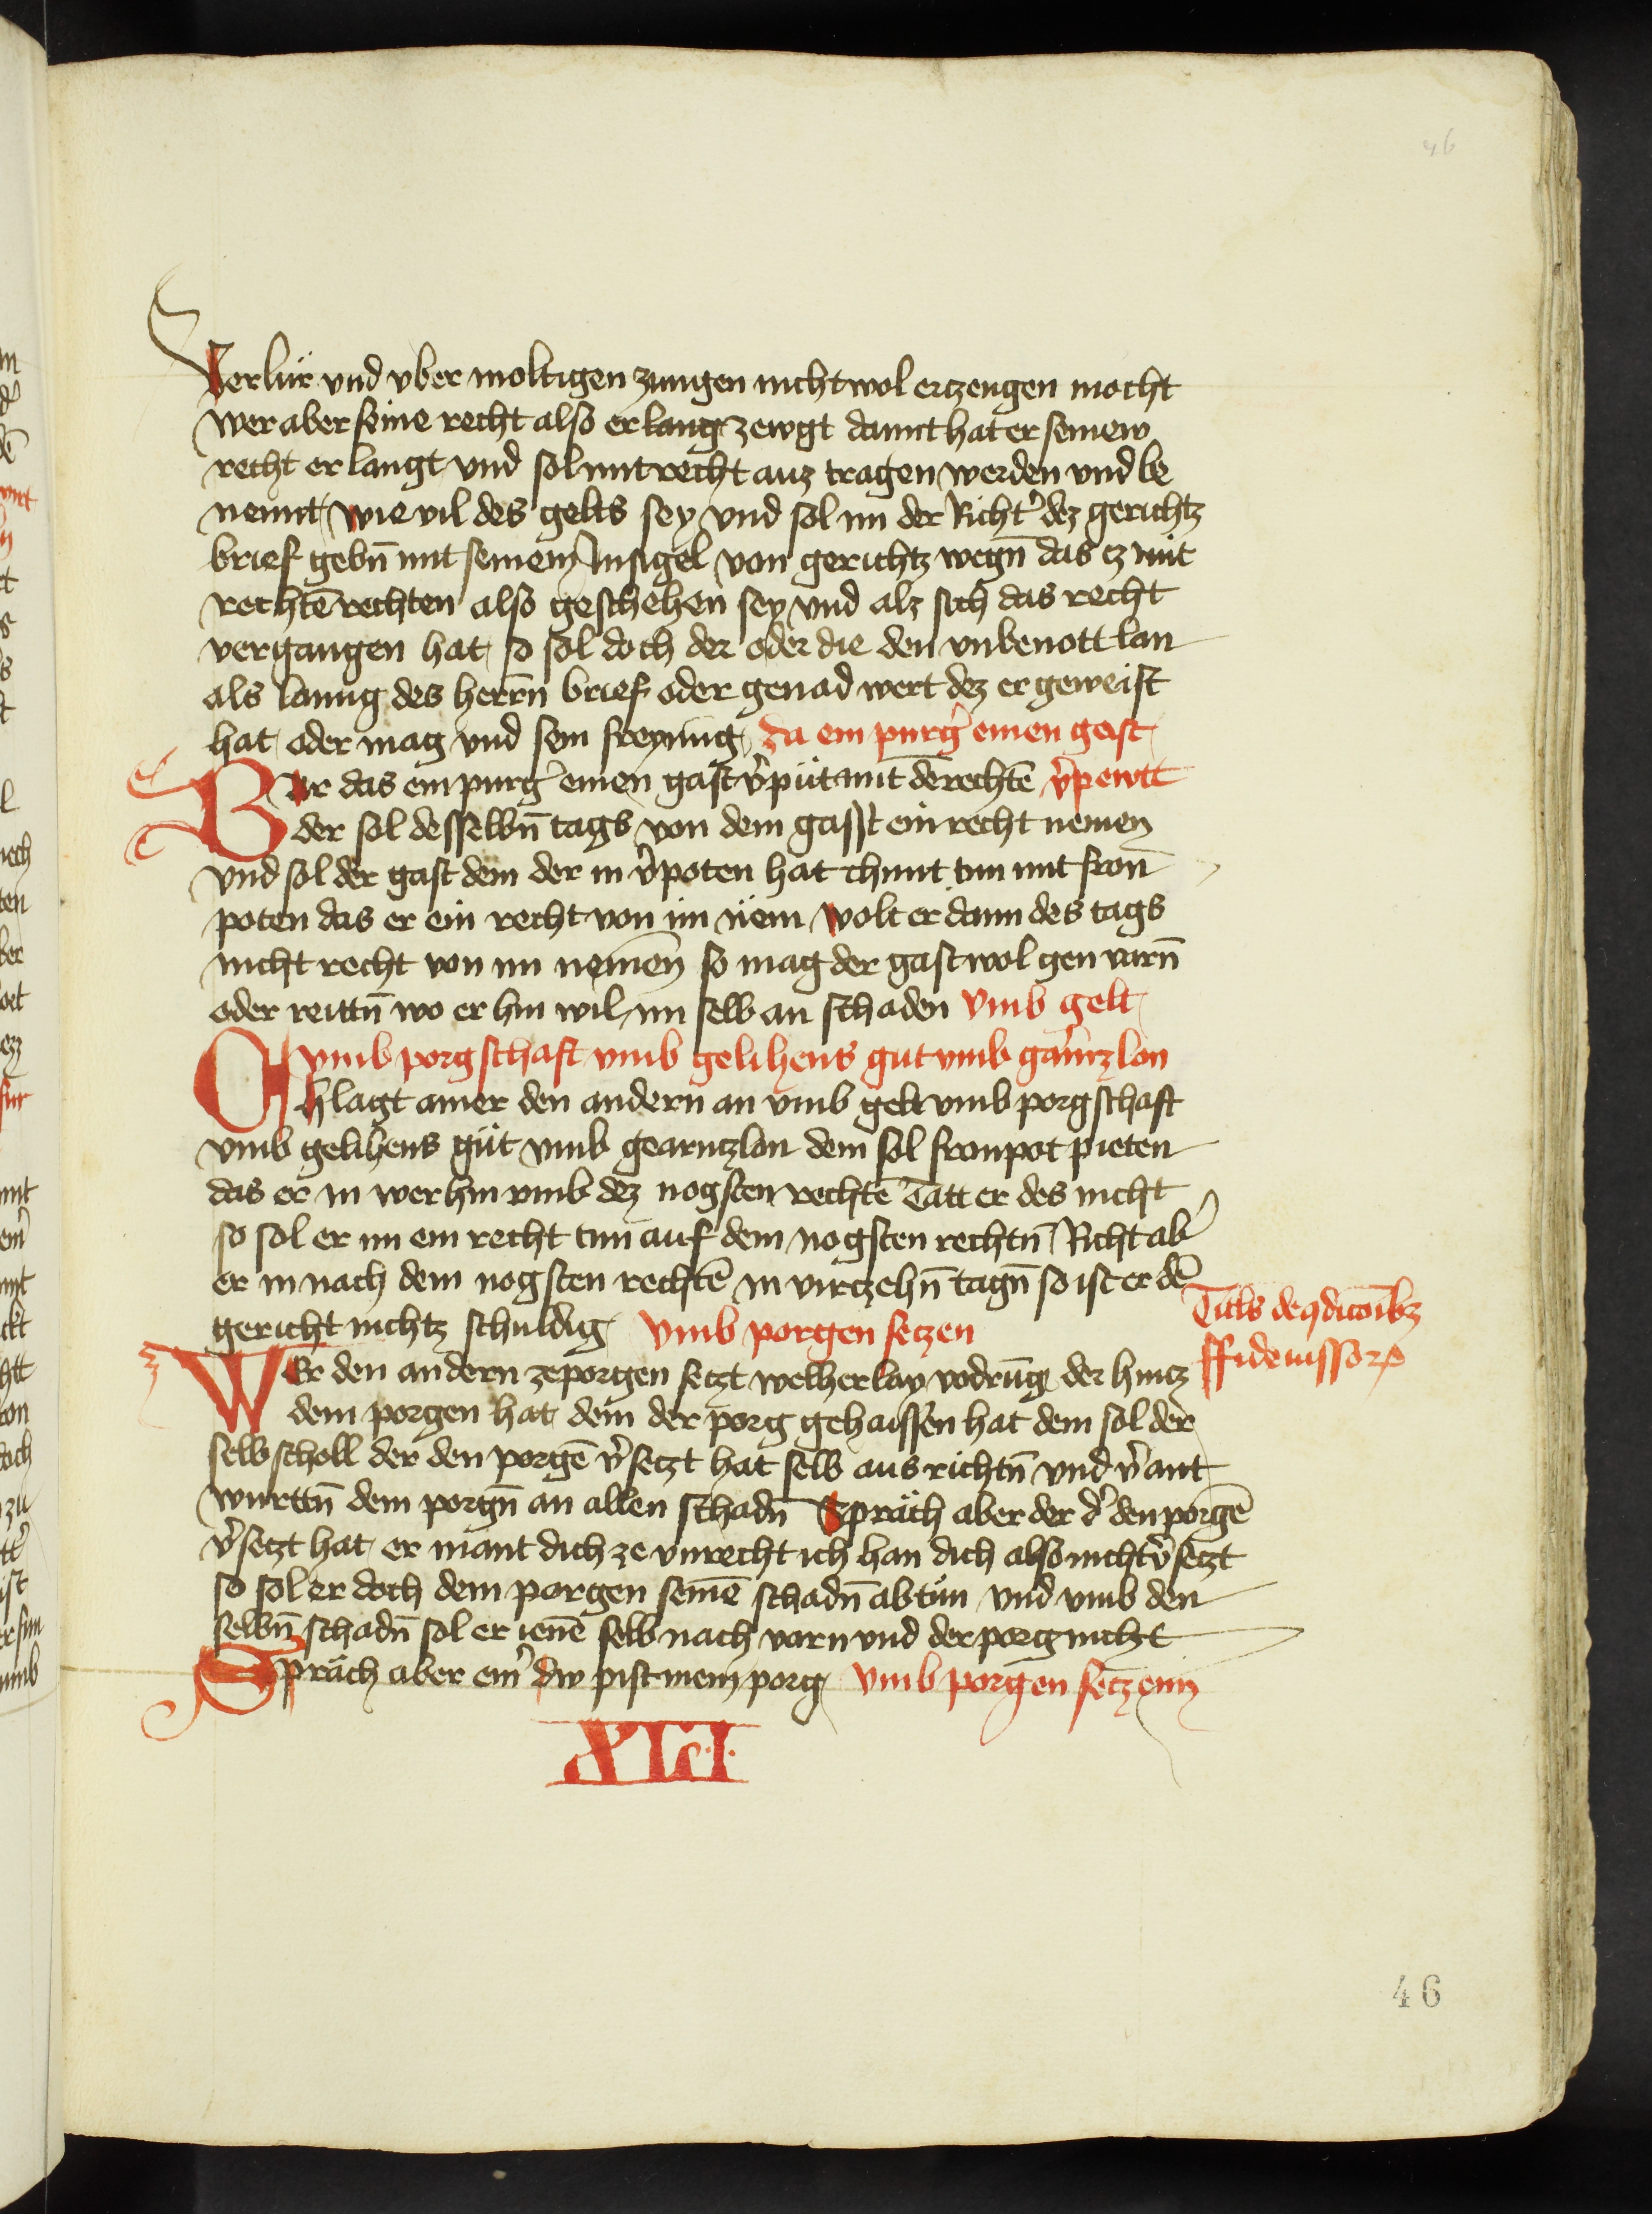 46
Verlür vnd vber moltigen zungen nicht wol erzeugen mocht
wer aber seine recht also erlangt zewgt damit hat er seinew
recht er langt vnd sol mit recht auz tragen werden vnd be
nennt wie vil des gelts sey vnd sol im der Richt̕ dez gerichtz
brief gebn̄ mit seinem Insigel von gerichtz wegn̄ das ez mit
rechtē rechten also geschehen sey vnd alz sich das recht
vergangen hat so sol doch der oder die den vnbenott lan
als lanng des herrn̄ brief oder genad wert dez er geweist
hat oder mag vnd sein freyung da ein purg̕ einen gast
Wer das ein purg̕ einen gast v̕püt mit dē rechtē v̕pewtt
der sol desselbn̄ tags von dem gasst ein recht nemen
vnd sol der gast dem der in v̕poten hat chunt tun mit fron
poten das er ein recht von im näm wolt er dann des tags
nicht recht von im nemen so mag der gast wol gen varn̄
oder reittn̄ wo er hin wil im selb an schaden Vmb gelt
vmb porgschaft vmb gelihens gut vmb garnzlon
Chlagt ainer den andern an vmb gelt vmb porgschaft
vmb gelihens güt vmb gearntzlon dem sol fronpot pieten
das er in wer hin vmb dez nogsten rechtē Tätt er des nicht
so sol er im ein recht tun auf dem nogsten rechtn̄ Richt ab̕
er in nach dem nogsten rechtē in virzehn̄ tagn̄ so ist er dē
gericht nichtz schuldig Vmb porgen setzen
Titls de 9dicoīb3
ffideiussorꝝ
Wer den andern ze porgen setzt welherlay vodrūg der hintz
dem porgen hat dem der porg gehaissen hat dem sol der
selbscholl der den porgē v̕setzt hat selb aus richtn̄ vnd v̕ant
wurttn̄ dem porgn̄ an allen schadn̄ Spräch aber der d̕ den porgē
v̕setzt hat er mant dich ze vnrecht ich han dich also nicht v̕setzt
so sol er doch dem porgen seinē schadn̄ ab tun vnd vmb den
selbn̄ schadn̄ sol er ienē selb nach varn vnd der porg nicht
Spräch aber ein̕ dw pist mein porg Vmb porgen setzenn
XLI
46